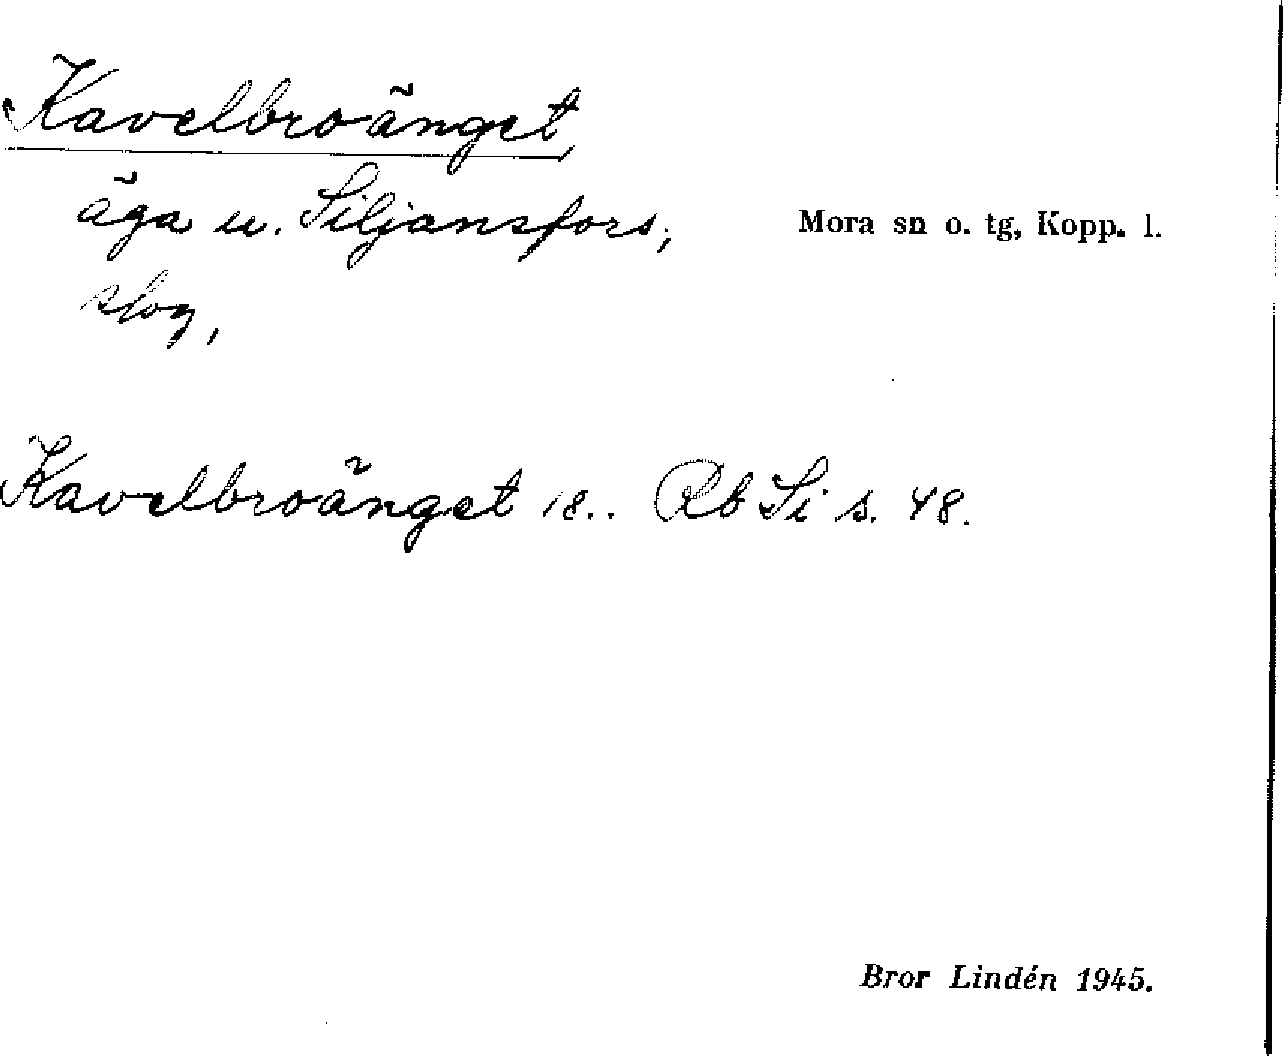 Kavelbroänget,
äga u. Siljansfors,
Mora sn o. tg, Kopp. l.
skog,
Kavelbroänget 18.. Rb Si s. 48.
Bror Lindén 1945.